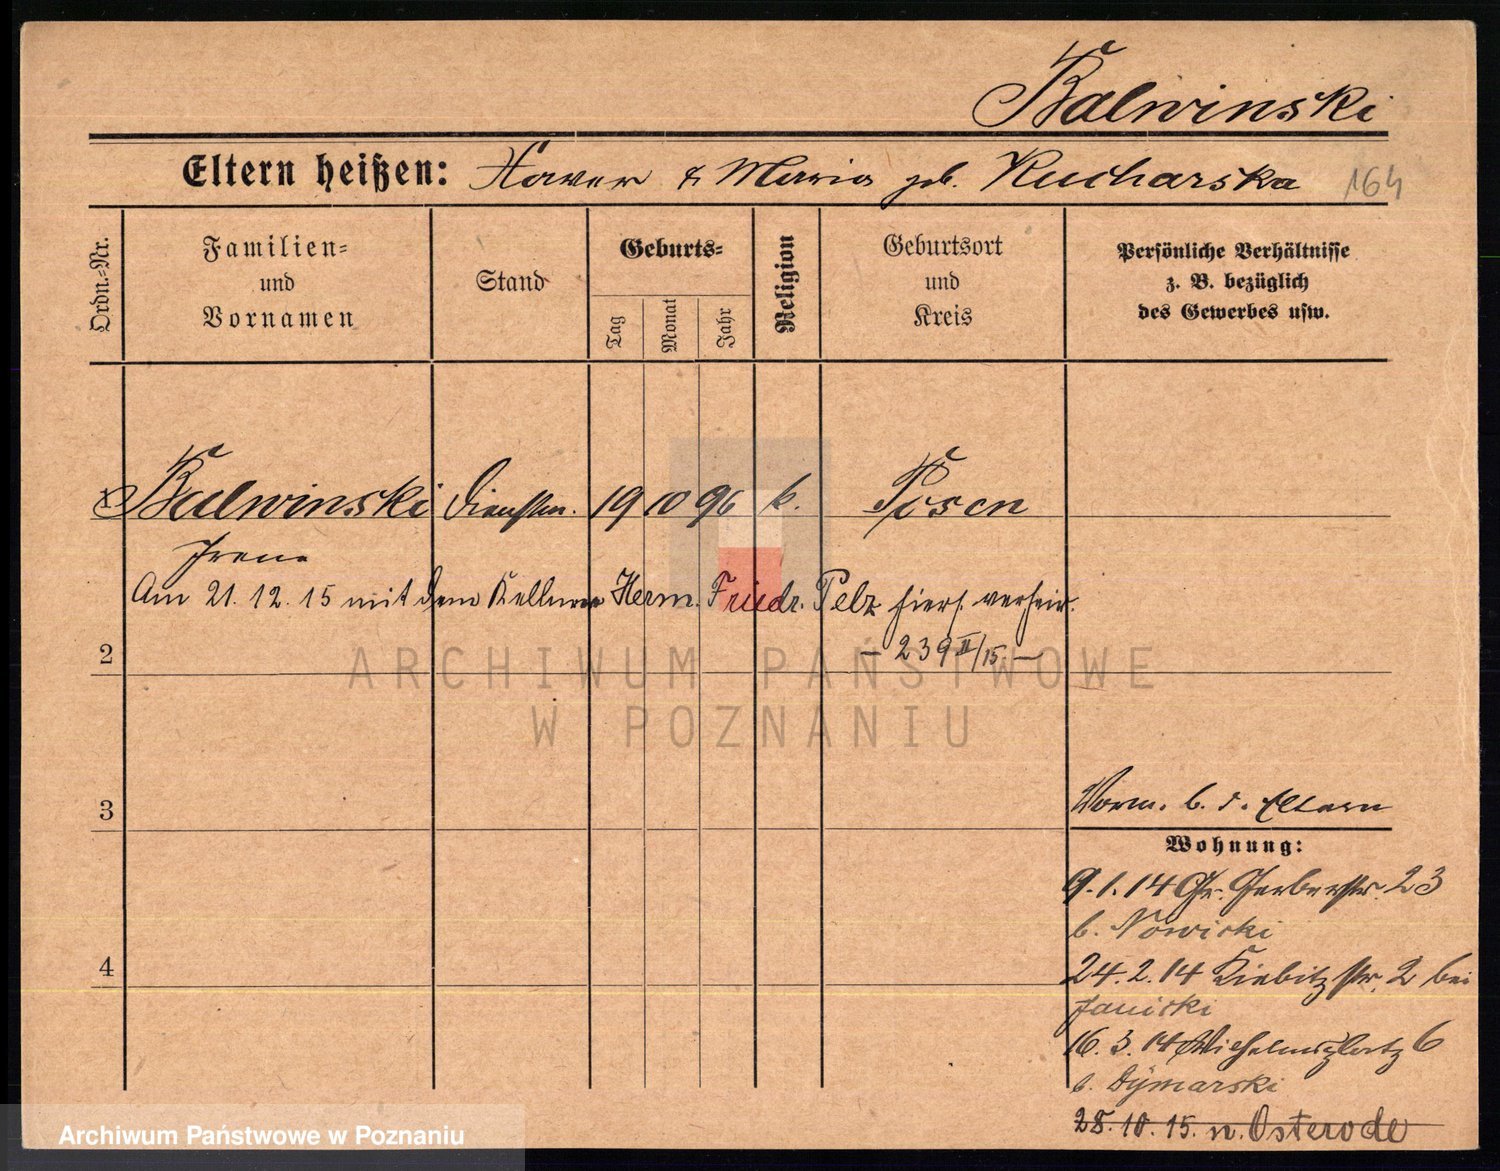 Balwinski
Eltern heißen: Xaver & Maria geb. Kucharska 164
Ordn.-Nr.
Familien-
und
Vornamen
Stand
Geburts-
Tag
Monat
Jahr
Religion
Geburtsort
und
Kreis
Persönliche Verhältnisse
z. B. bezüglich
des Gewerbes usw.
1 Balwinski Dienstm. 19 10 96 k. Posen
Irene
Am 21. 12. 15 mit dem Kellner Herm. Friedr. Pelz hiers. verheir.
— 239 II/15. —
2
ARCHIWUM PAŃSTWOWE
W POZNANIU
3
Vorm. b. d. Eltern
Wohnung:
9. 1. 14 Gr. Gerberstr. 23
b. Nowicki
4
24. 2. 14 Kiebitzstr. 2 bei
Janicki
16. 3. 14 Wilhelmsplatz 6
b. Dymarski
28. 10. 15. n. Osterode
Archiwum Państwowe w Poznaniu